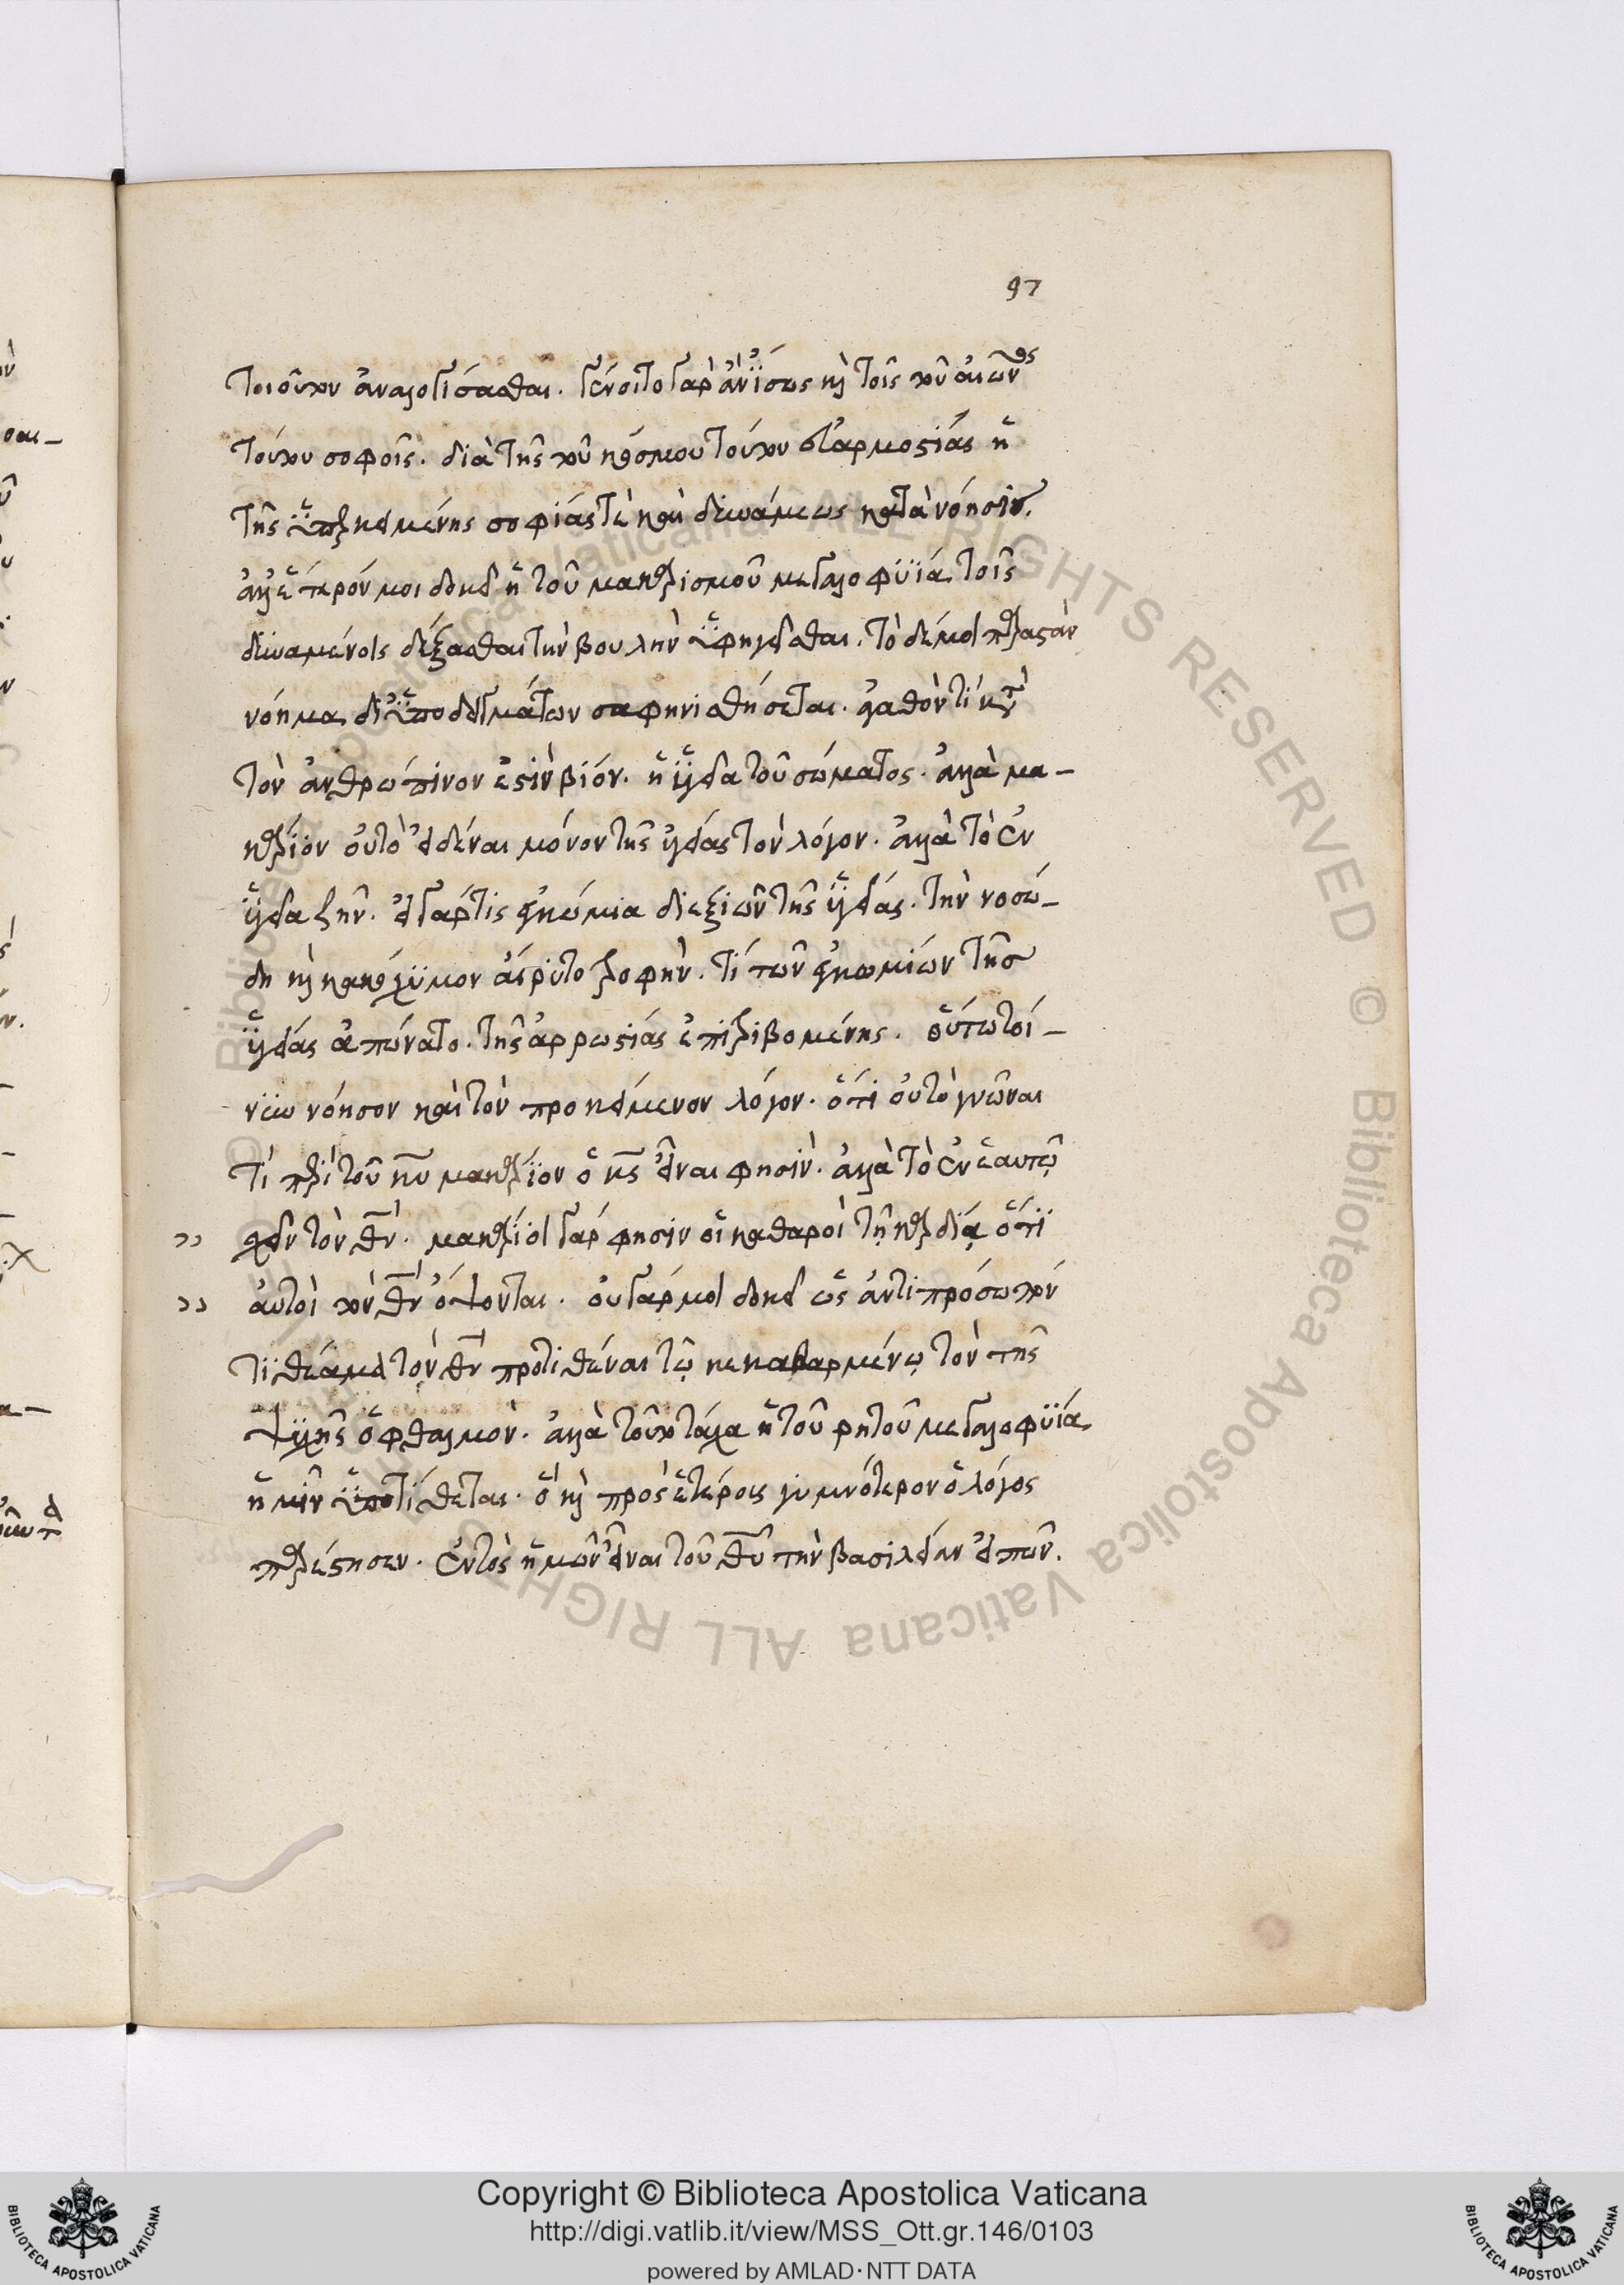 97
τοιοῦτον ἀναλογίσασθαι. γένοιτο γὰρ ἂν ἴσως καὶ τοῖς τοῦ αἰῶνος
τούτου σοφοῖς. διὰ τῆς τοῦ κόσμου τούτου εὐαρμοστίας ἡ
τῆς ὑπερκειμένης σοφίας τὲ καὶ δυνάμεως κατανόησις.
ἀλλ' ἕτερόν μοι δοκεῖ ἡ τοῦ μακαρισμοῦ μεγαλοφυΐα τοῖς
δυναμένοις δέξασθαι τὴν βουλὴν ὑφηγεῖσθαι. τὸ δέ μοι παραστὰν
νόημα δι' ὑποδειγμάτων σαφηνισθήσεται. ἀγαθόν τι κατὰ
τὸν ἀνθρώπινον ἐστὶν βίον. ἡ ὑγεία τοῦ σώματος. ἀλλὰ μα-
κάριον οὐ τὸ εἰδέναι μόνον τῆς ὑγείας τὸν λόγον. ἀλλὰ τὸ ἐν
ὑγεία ζῆν. εἰ γάρ τις ἐγκώμια διεξιὼν τῆς ὑγείας. τὴν νοσώ-
δη καὶ κακόχυμον αἱρῦτο τροφὴν. τί τῶν ἐγκωμίων τῆς
ὑγείας ἀπώνατο. τῆς ἀρρωστίας ἐπιτριβομένης. οὕτω τοί-
νυν νόησον καὶ τὸν προκείμενον λόγον. ὅτι οὐ τὸ γνῶναι
τί περὶ τοῦ θυ μακάριον ὁ κς εἶναι φησίν. ἀλλὰ τὸ ἐν ἑαυτῷ
σχεῖν τὸν θν. μακάριοι γάρ φησιν οἱ καθαροὶ τῇ καρδίᾳ ὅτι
αὐτοὶ τὸν θν ὄψονται. οὐ γάρ μοι δοκεῖ ὡς ἀντιπρόσωπόν
τι θέαμα τὸν θν προτιθέναι τῷ κεκαθαρμένῳ τὸν τῆς
ψυχῆς ὀφθαλμὸν. ἀλλὰ τοῦτο τάχα ἡ τοῦ ρητοῦ μεγαλοφυΐα
ἡμῖν ὑποτίθεται. ὃ καὶ πρὸς ἑτέρους γυμνότερον ὁ λόγος
παρέστησεν. ἐντὸς ἡμῶν εἶναι τοῦ θυ τὴν βασιλείαν εἰπῶν.
Copyright © Biblioteca Apostolica Vaticana
http://digi.vatlib.it/view/MSS_Ott.gr.146/0103
powered by AMLAD·NTT DATA